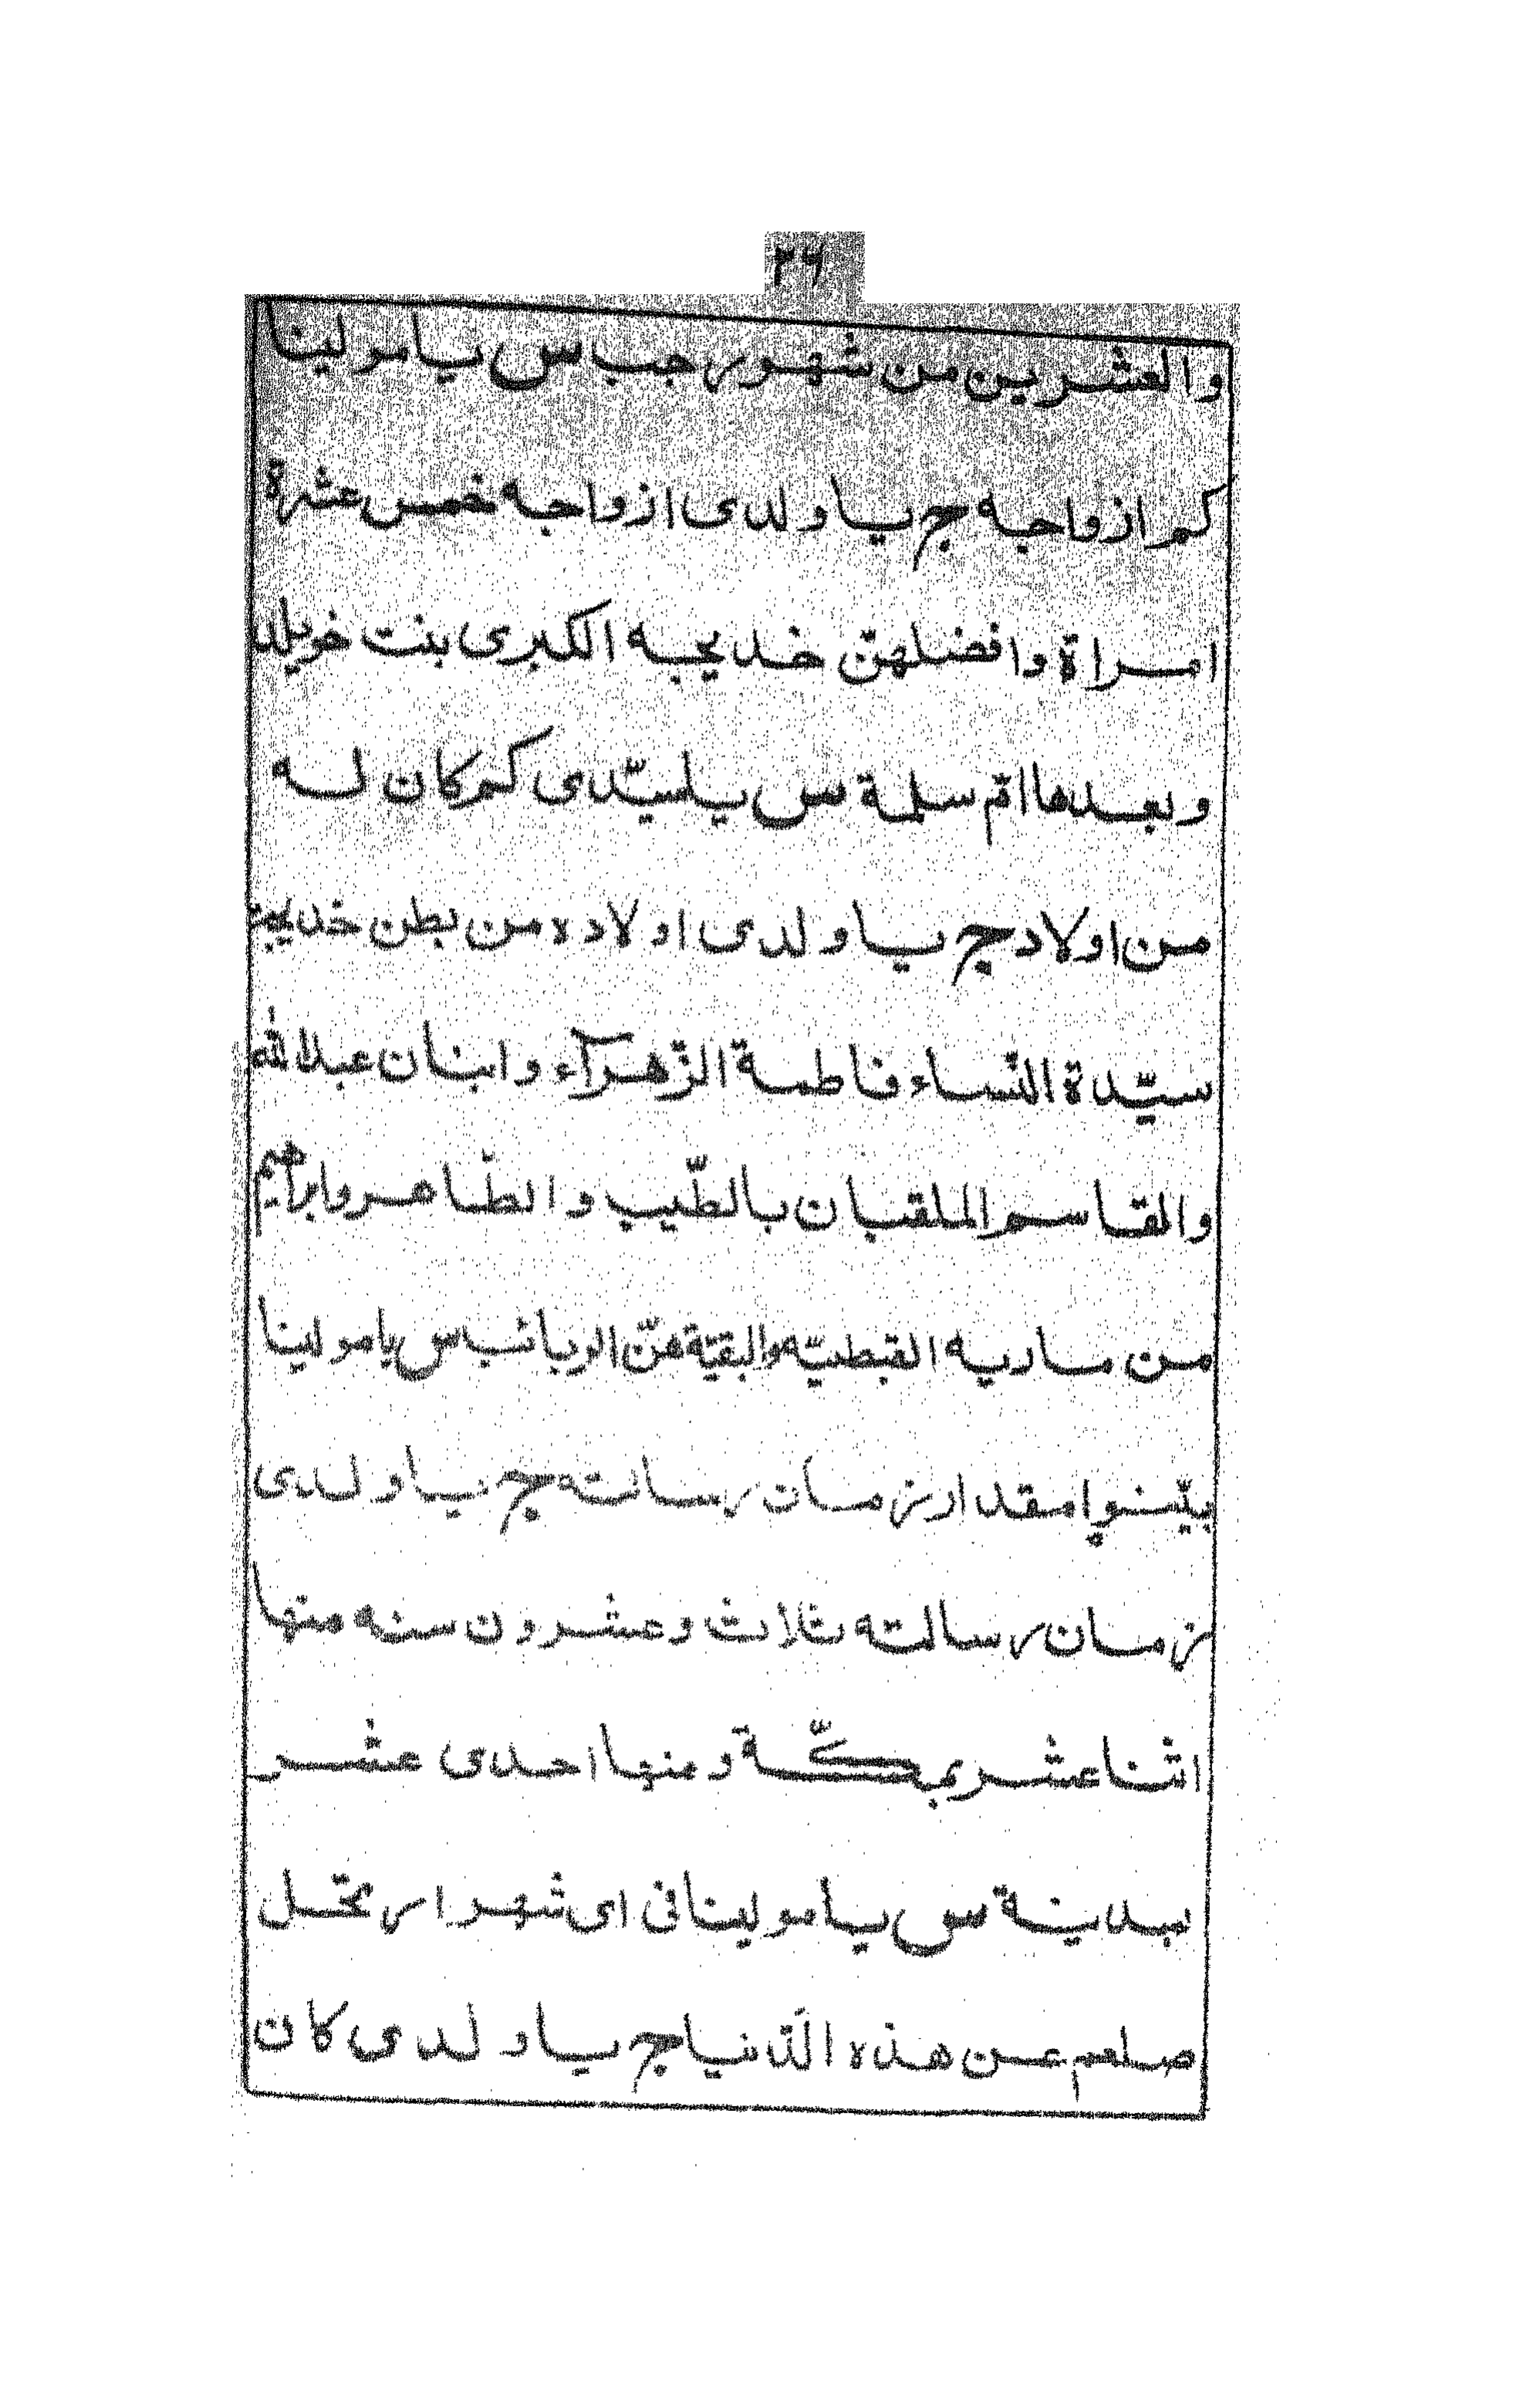 ٢٦
والعشرين من شهور جب س يا مولينا
كم ازواجه ج يا ولدى ازواجه خمس عشرة
امراة وافضلهنّ خديجه الكبرى بنت خويلد
وبعدها امّ سلمة س يا سيّدى كم كان له
من اولاد ج يا ولدى اولاده من بطن خديجة
سيّدة النّساء فاطمة الزّهرآء وابنان عبدالله
والقاسم الملقبان بالطّيب والطّاهر وابراهيم
من ماريه القبطيّه والبقيّة هنّ الربائب س يا مولينا
بيّنوا مقدار زمان رسالته ج يا ولدى
زمان رسالته ثلاث وعشرون سنه منها
اثنا عشر بمكّة ومنها احدى عشر
بمدينة س يا مولينا فى اى شهر ارتحل
صلعم عن هذه الدّنيا ج يا ولدى كان